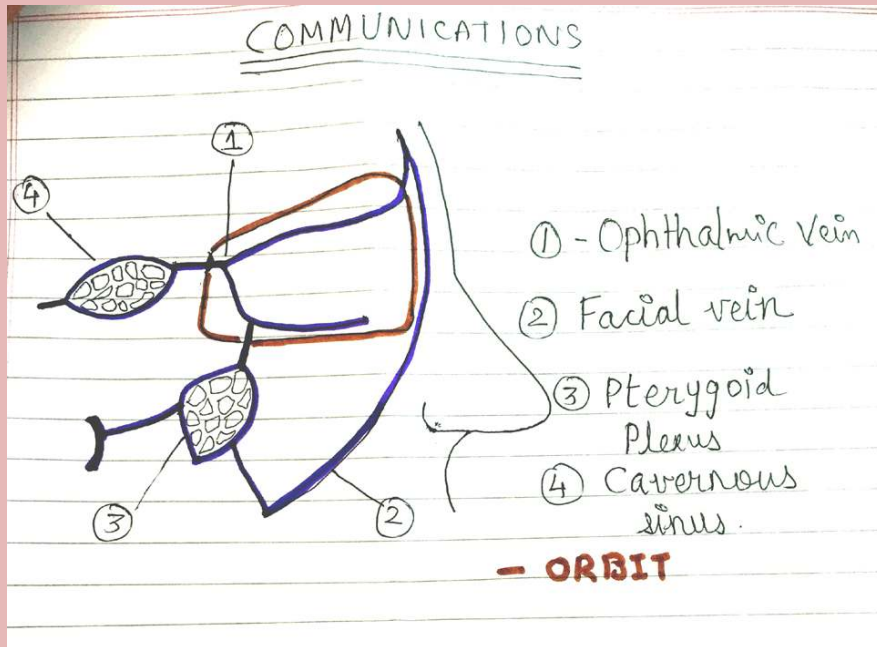 COMMUNICATIONS
①
④
① - Ophthalmic vein
② Facial vein
③ Pterygoid
Plexus
④ Cavernous
sinus.
③
②
- ORBIT